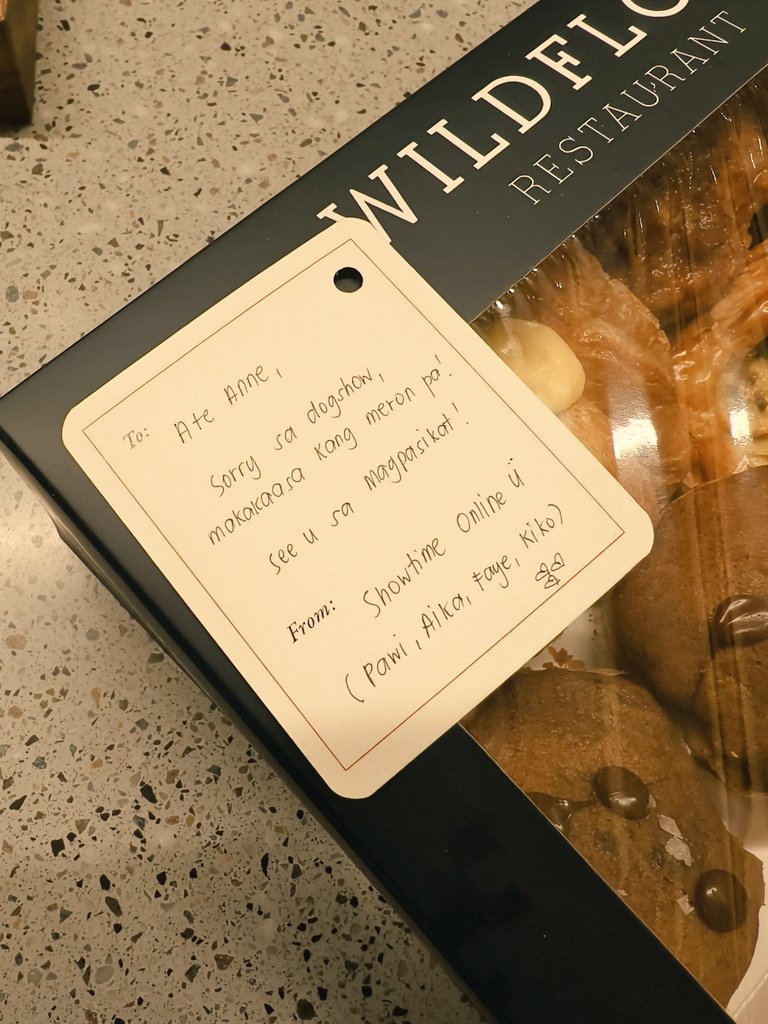 WILDFLO
RESTAURANT
To: Ate Anne,
Sorry sa dogshow,
makakaasa kang meron pa!
see u sa magpasikat!
From: Showtime Online Ü
(Pawi, Aika, Faye, Kiko)